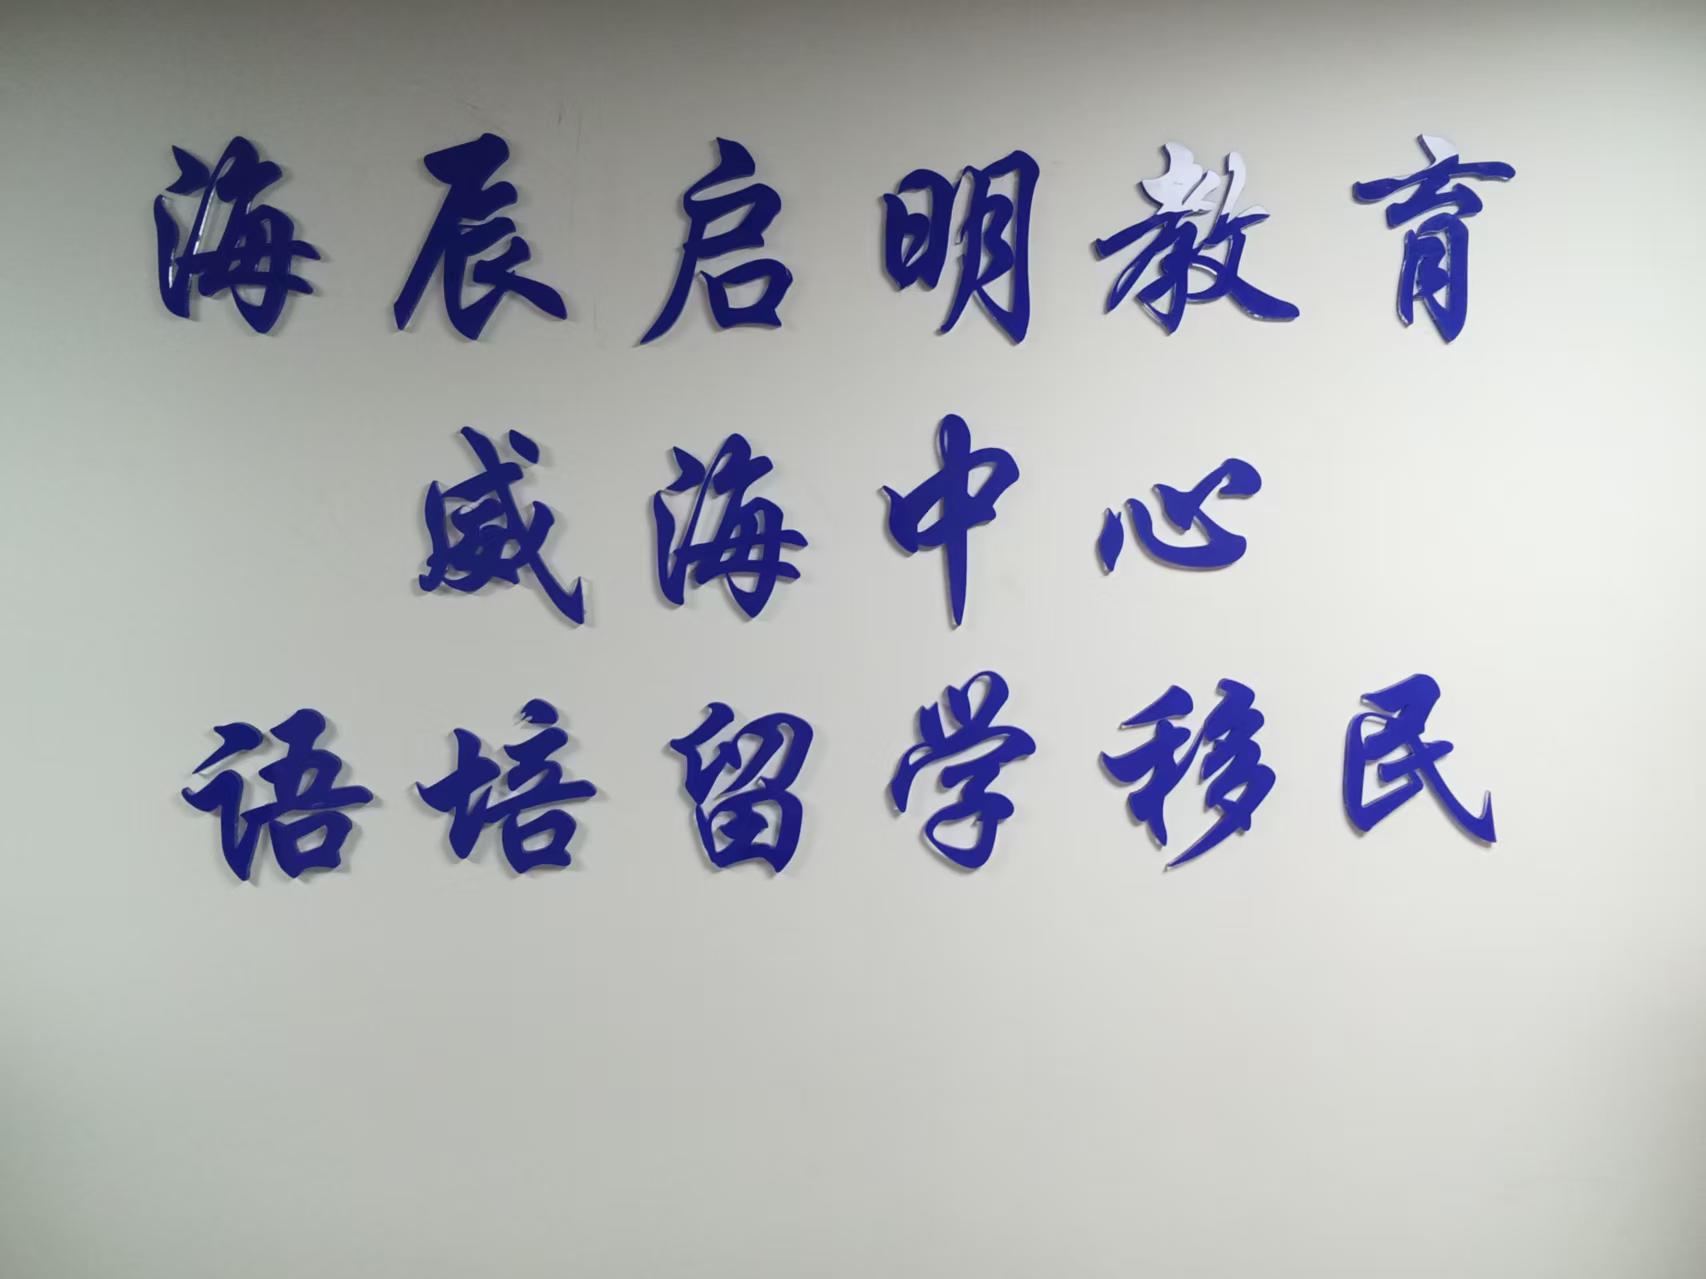 海辰启明教育
威海中心
语培留学移民